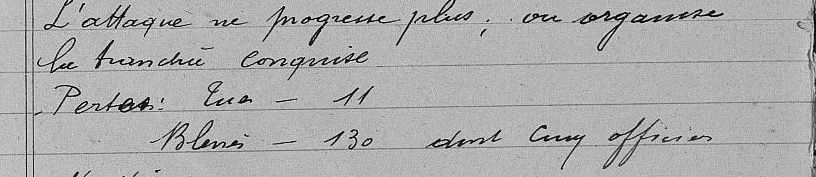 L'attaque ne progresse plus ; on organise
la tranchée conquise
Pertes : Tués — 11
Blessés — 130 dont cinq officiers